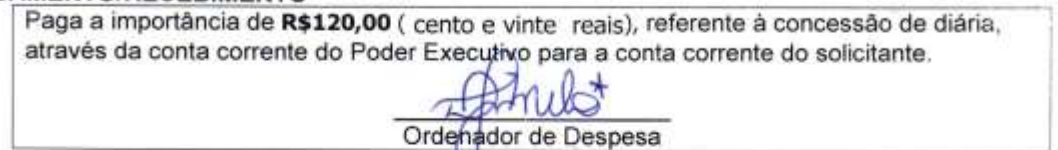 Paga a importância de R$120,00 ( cento e vinte reais), referente à concessão de diária,
através da conta corrente do Poder Executivo para a conta corrente do solicitante.
Ordenador de Despesa